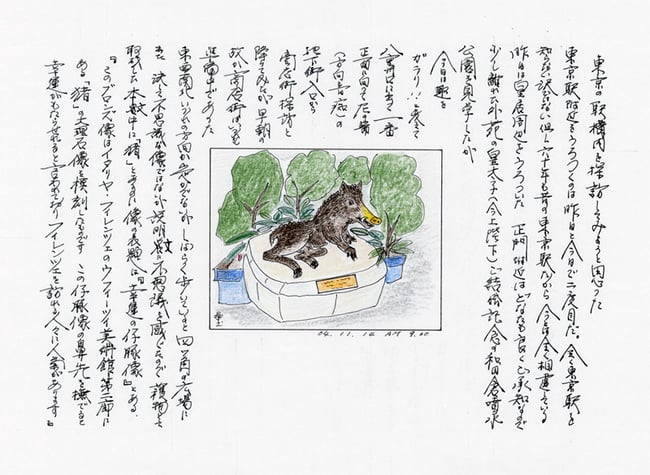 東京の駅構内を探訪してみようと思った
東京駅附近をうろつくのは昨日と今日で二度目だ。全く東京駅を
知らない訳ではない 但し六十年も昔の東京駅だから 今とは全く相違している
昨日は皇居周辺をうろついた 正門附近はどなたも良くご承知なので
少し離れた外苑の皇太子(今上陛下)ご結婚記念の和田倉噴水
公園を見学したが
今日は趣を
ガラリ!!と変えて
八重洲口に出て一番
正面に向って右の端
(方向は)の
地下街入口から
商店街探訪と
降りてみたが 早朝の
故か商店街はいづこも
準備中であった
東西南北いづれの方向か定かでないが しばらく歩いていると四ツ角の広場に
また決して不思議な像ではないが 説明文に不思議を感じたので
本文中に「猪」とあるのに像の表題は『幸運の仔豚像』とある.
『このブロンズ像はイタリヤ・フィレンツェのウフィーツィ美術館第三廊に
ある「猪」の大理石像を模刻したものです この仔豚像の鼻先を撫でると
幸運がもたらせると言われておりフィレンツェを訪れる人々に人気があります』
04. 11. 14 AM 9.00